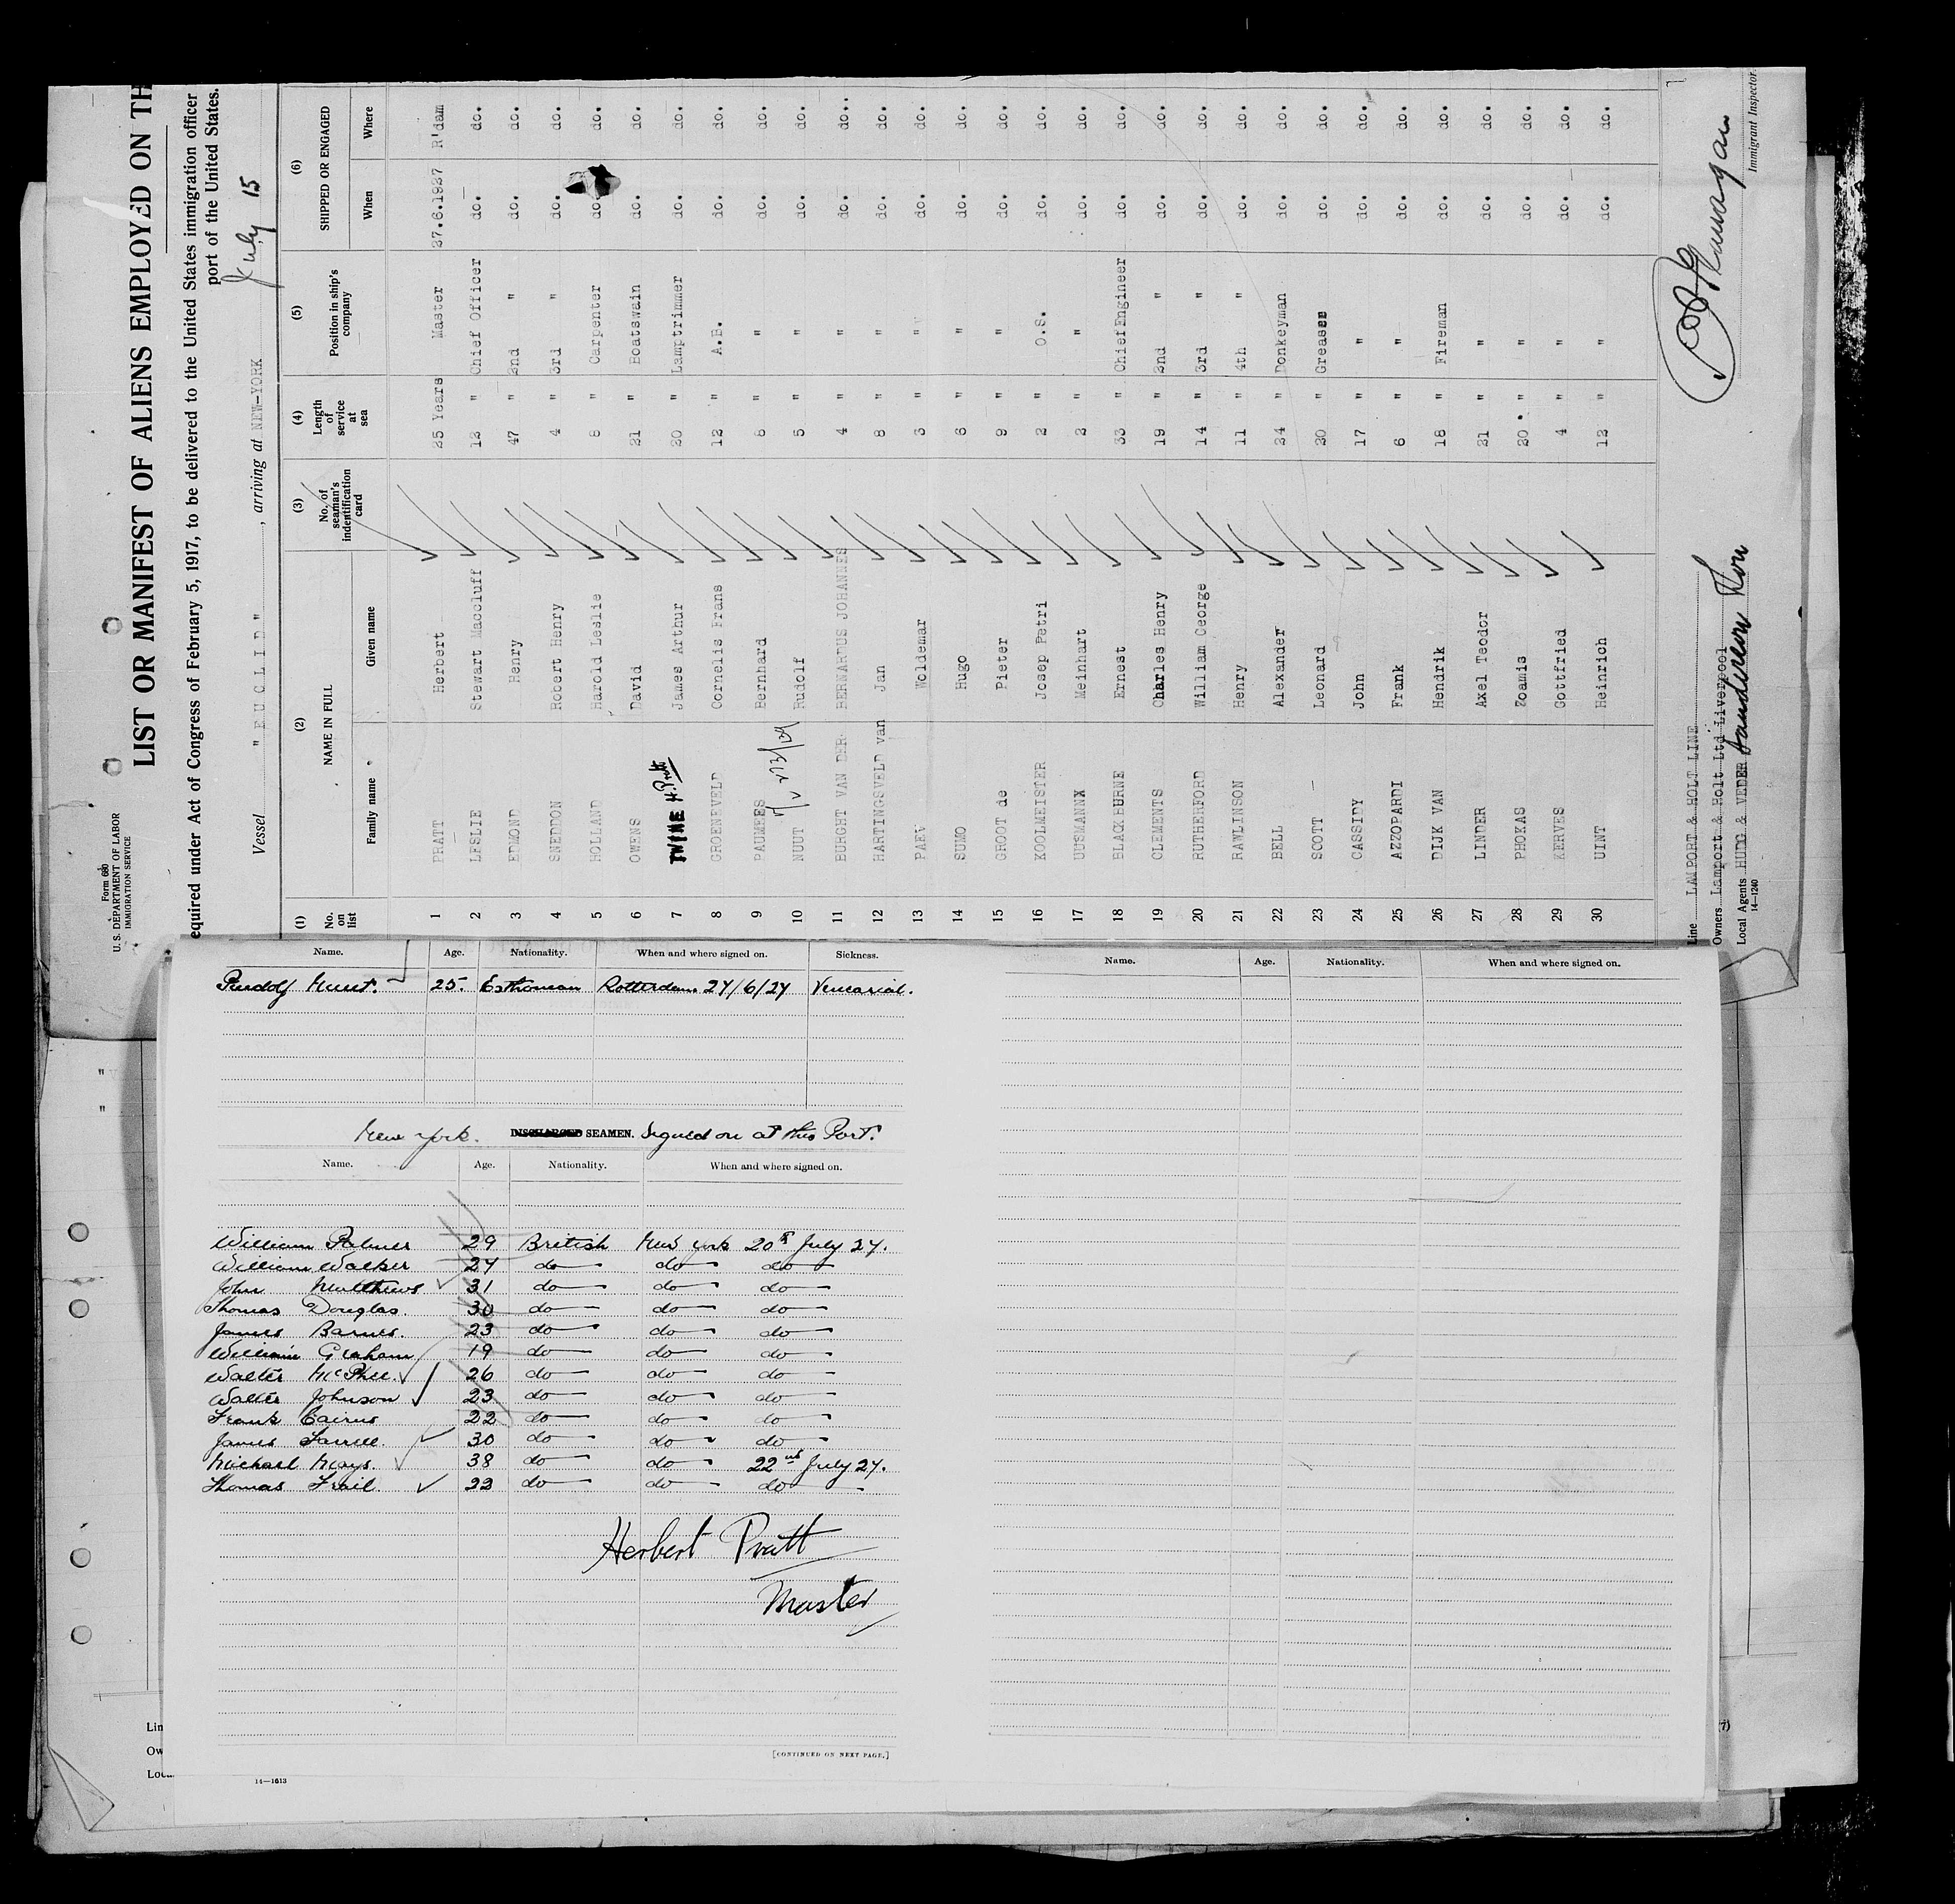 Form 680
U. S. DEPARTMENT OF LABOR
IMMIGRATION SERVICE
LIST OR MANIFEST OF ALIENS EMPLOYED ON TH
equired under Act of Congress of February 5, 1917, to be delivered to the United States immigration officer
port of the United States.
Vessel "EUCLID", arriving at NEW-YORK July 15
(1) (2) (3) (4) (5) (6)
No. on list NAME IN FULL No. of seaman's indentification card Length of service at sea Position in ship's company SHIPPED OR ENGAGED
Family name Given name When Where
1 PRATT Herbert 25 Years Master 27.6.1927 R'dam
2 LESLIE Stewart Maccluff 12 " Chief Officer do. do.
3 EDMOND Henry 47 " 2nd " do. do.
4 SNEDDON Robert Henry 4 " 3rd " do. do.
5 HOLLAND Harold Leslie 8 " Carpenter do. do.
6 OWENS David 21 " Boatswain do. do.
7 H. Pratt James Arthur 20 " Lamptrimmer do. do.
8 GROENEVELD Cornelis Frans 12 " A.B. do. do.
9 PAUMEES Bernhard 8 " " do. do.
10 NUUT Rudolf 5 " " do. do.
11 BURGHT VAN DER BERNARDUS JOHANNES 4 " " do. do..
12 HARTINGSVELD van Jan 8 " " do. do.
13 PAEV Woldemar 3 " " do. do.
14 SUMO Hugo 6 " " do. do.
15 GROOT de Pieter 9 " " do. do.
16 KOOLMEISTER Josep Petri 2 " O.S. do. do.
17 UUSMANNX Meinhart 2 " " do. do.
18 BLACKBURNE Ernest 33 " Chief Engineer do. do.
19 CLEMENTS Charles Henry 19 " 2nd " do. do.
20 RUTHERFORD William George 14 " 3rd " do. do.
21 RAWLINSON Henry 11 " 4th " do. do.
22 BELL Alexander 24 " Donkeyman do. do.
23 SCOTT Leonard 20 " Greaser do. do.
24 CASSIDY John 17 " " do. do.
25 AZZOPARDI Frank 6 " " do. do.
26 DIJK VAN Hendrik 18 " Fireman do. do.
27 LINDER Axel Teodor 21 " " do. do.
28 PHOKAS Zoamis 20 " " do. do.
29 KERVES Gottfried 4 " " do. do.
30 UINT Heinrich 12 " " do. do.
Line LAMPORT & HOLT LINE
Owners Lamport & Holt Ltd Liverpool
Local Agents HUDG & VEDER Sanderson & Son
14—1240
Immigrant Inspector.
Name. Age. Nationality. When and where signed on. Sickness.
Rudolf Nuut. 25. Esthonian Rotterdam 27/6/27 Venearial.
New York. DISCHARGED SEAMEN. Signed on at this Port.
Name. Age. Nationality. When and where signed on.
William Palmer 29 British New York 20th July 27.
William Walker 27 do do do
John Matthews 31 do do do
Thomas Douglas. 30 do do do
James Barnes. 23 do do do
William Graham 19 do do do
Walter McPhee. 26 do do do
Walter Johnson 23 do do do
Frank Cairns 22 do do do
James Farrell. 30 do do do
Michael Mays. 38 do do 22nd July 27.
Thomas Frail. 22 do do do
Herbert Pratt
Master
[CONTINUED ON NEXT PAGE.]
14—1613
Name. Age. Nationality. When and where signed on.
Lin
Ow
Loc